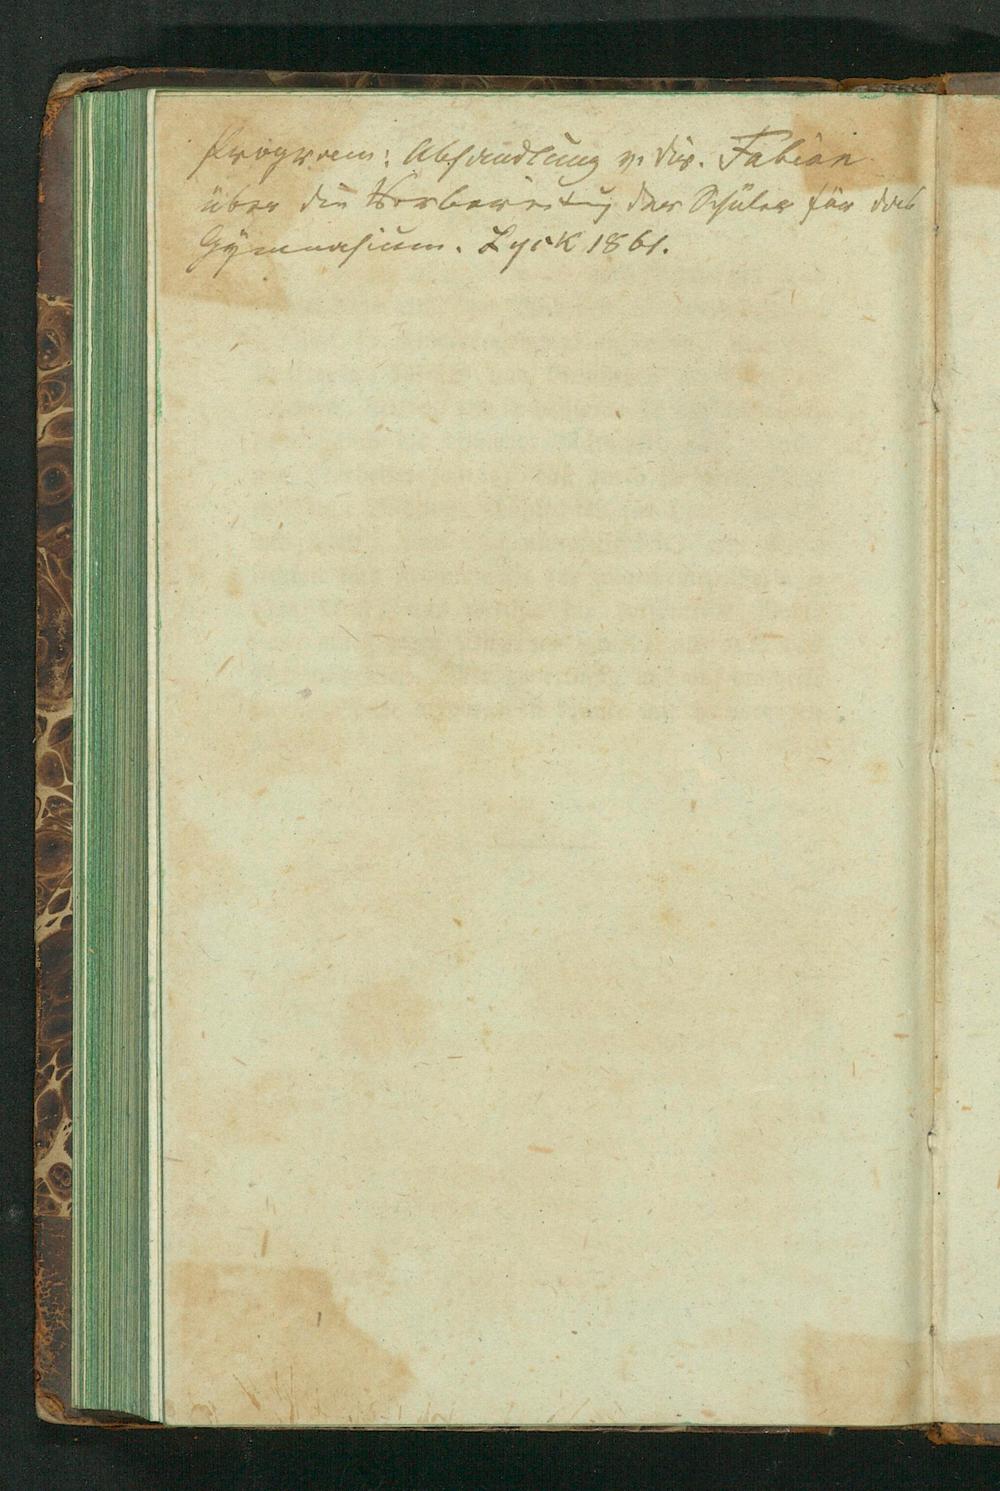 Program: Abhandlung v. Dir. Fabian
über die Vorbereitung der Schüler für das
Gymnasium. Lyck 1861.